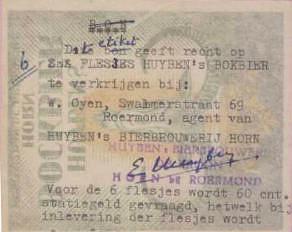 B O N
Dit etiket geeft recht op
6 ZES FLESJES HUYBEN's BOKBIER
te verkrijgen bij:
W. Oyen, Swalmerstraat 69
Roermond, agent van
HUYBEN's BIERBROUWERIJ HORN
HUYBEN's BIERBROUWERIJ
HORN bij ROERMOND
Voor de 6 flesjes wordt 60 cnt.
statiegeld gevraagd, hetwelk bij
inlevering der flesjes wordt
HORN